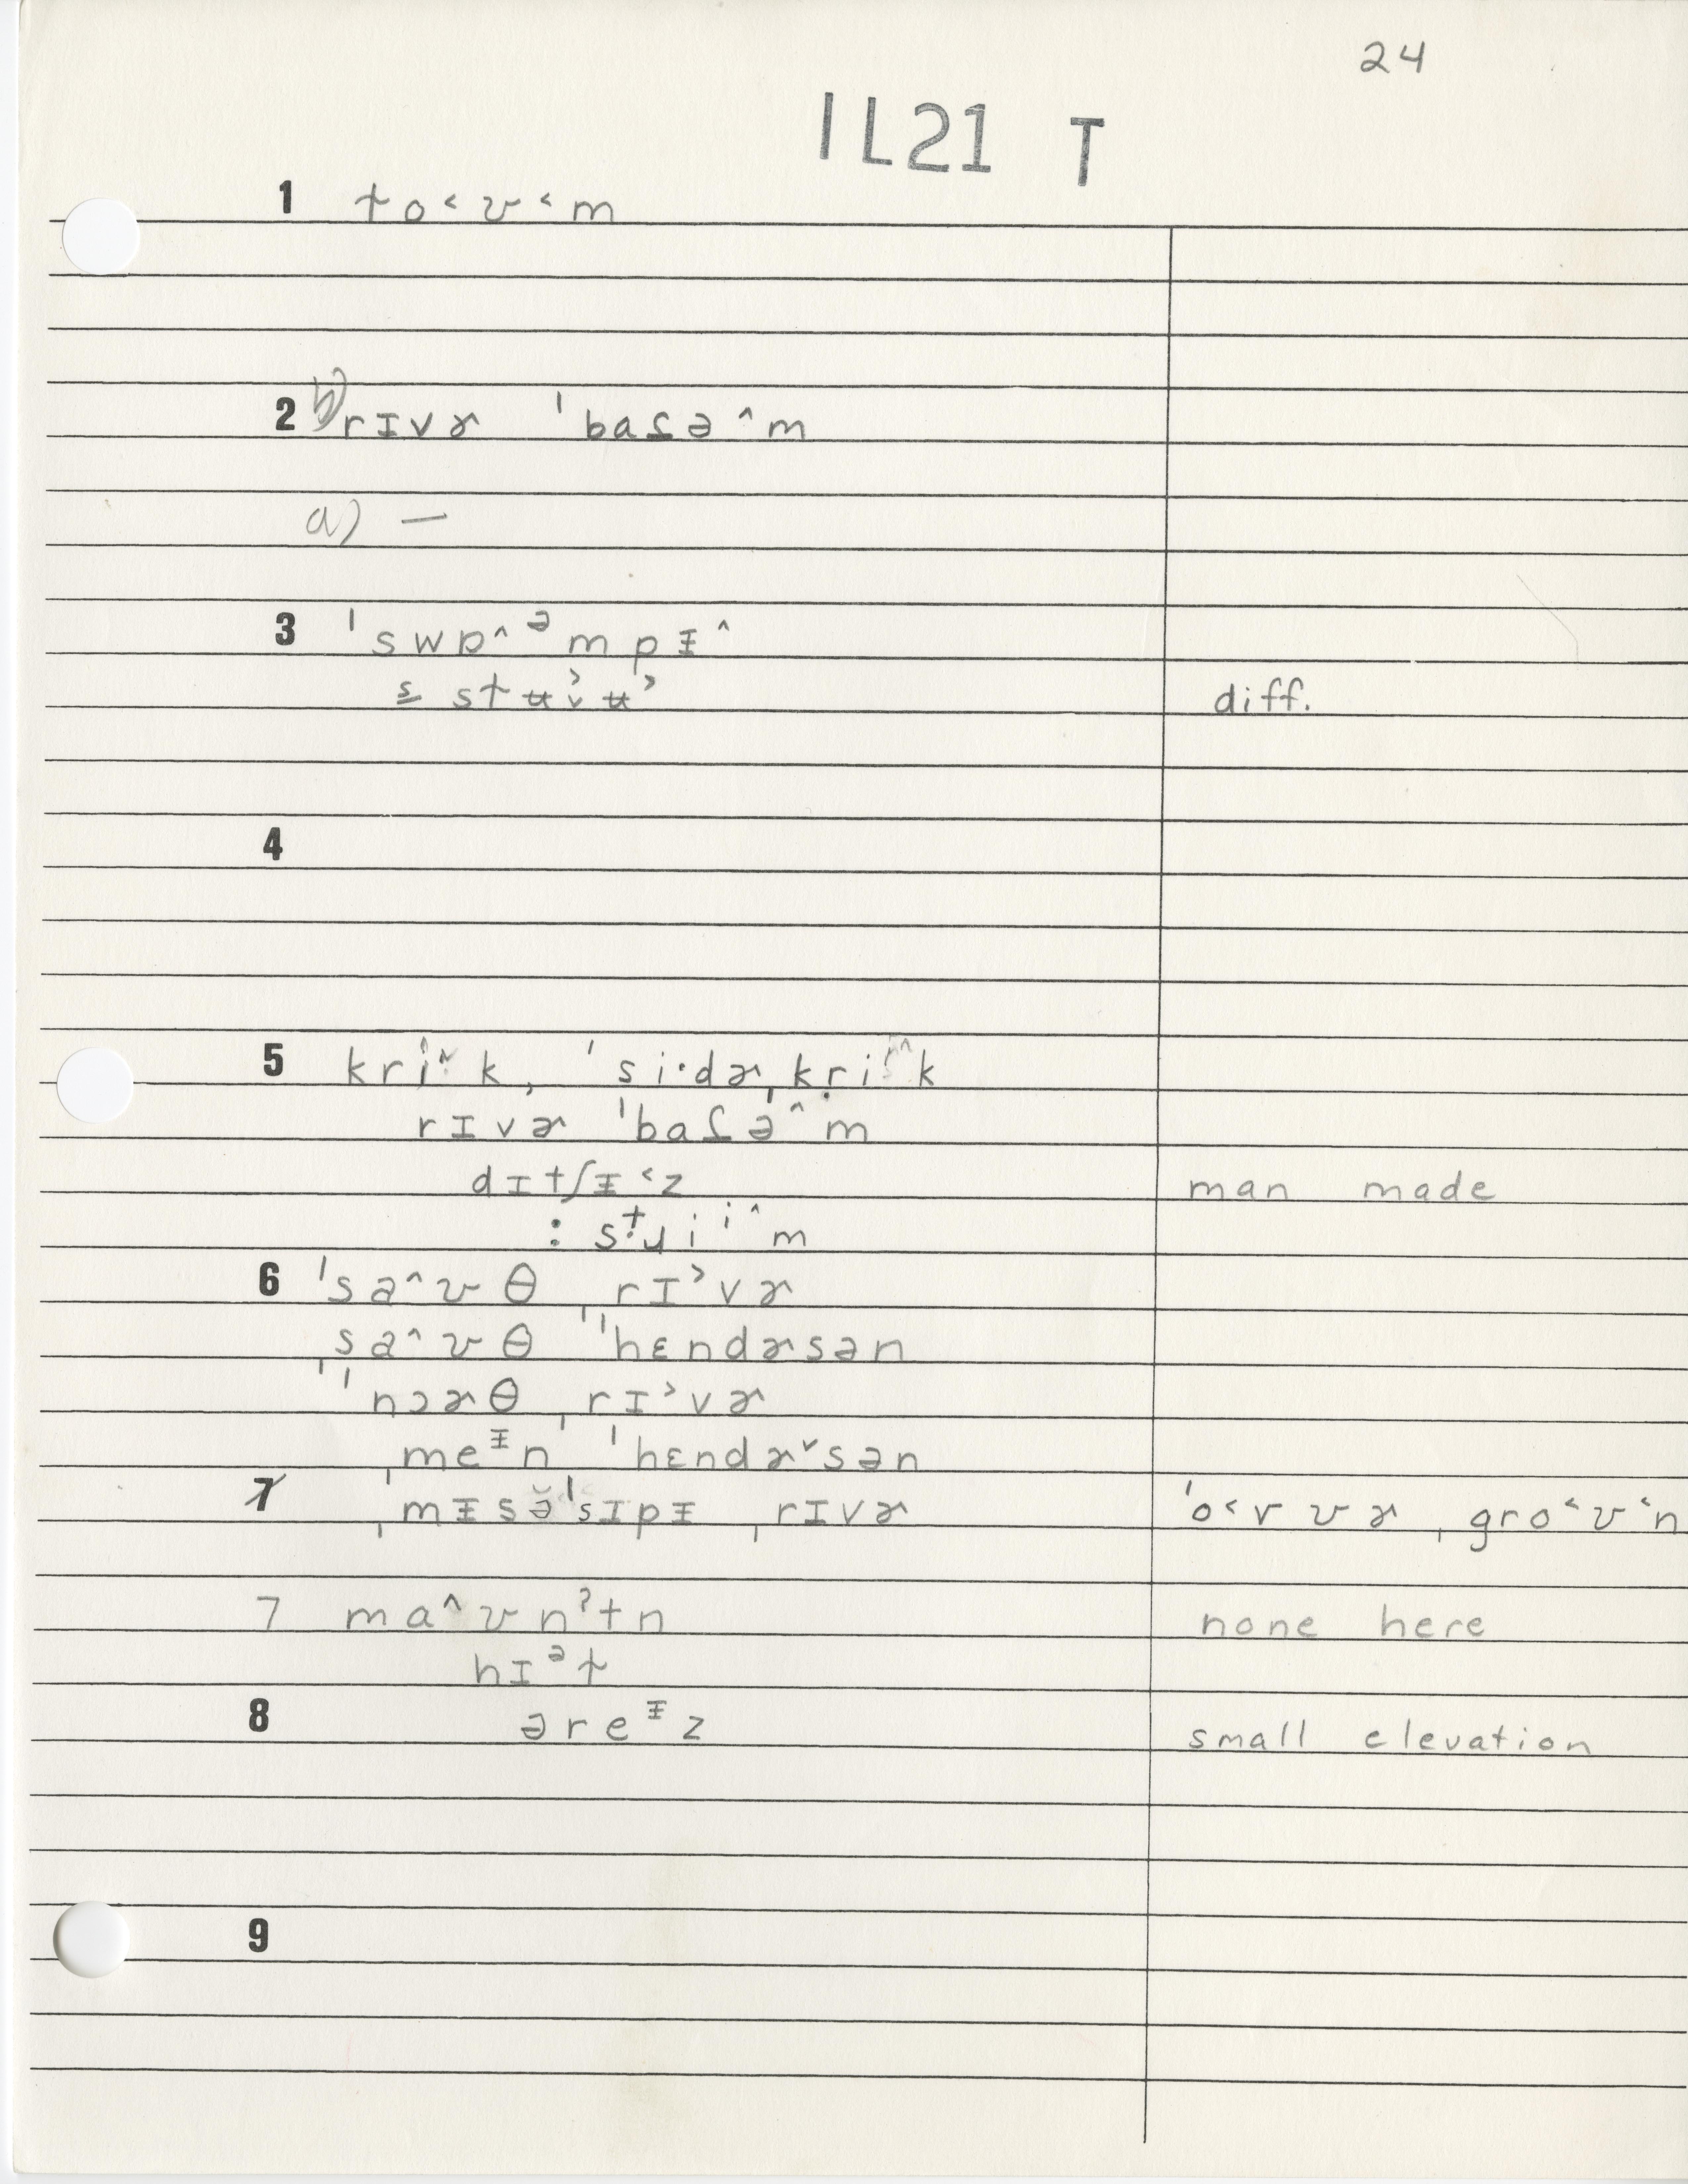 24
IL21 T
1 ɫo˂ʊ˂m
2 b) rɪvɚ ˈbaɾə˄m
a) —
3 ˈswɒ˄ᵊmpɪ̵˄
s̲ stʉ˃˅ʉ˃ diff.
4
5 kri˄ⁱ˅k, ˈsi·dɚˌkriⁱ˄k
rɪvɚ ˈbaɾə˄m
dɪtʃɪ̵˂z man made
: stɹiⁱ˄m
6 ˈsa˄ʊθ ˌrɪ˃vɚ
ˌsa˄ʊθ ˈˈhɛndɚsən
ˈˈnɔɚθ ˌrɪ˃vɚ
ˌmeᶧn ˈhɛndɚ˅sən
7 ˌmɪ̵sə̆ˈsɪpɪ̵ ˌrɪvɚ ˈo˂ʊvɚˌgro˂ʊ˂n
7 ma˄ʊnˀtn none here
hɪᵊɫ
8 əreᶧz small elevation
9